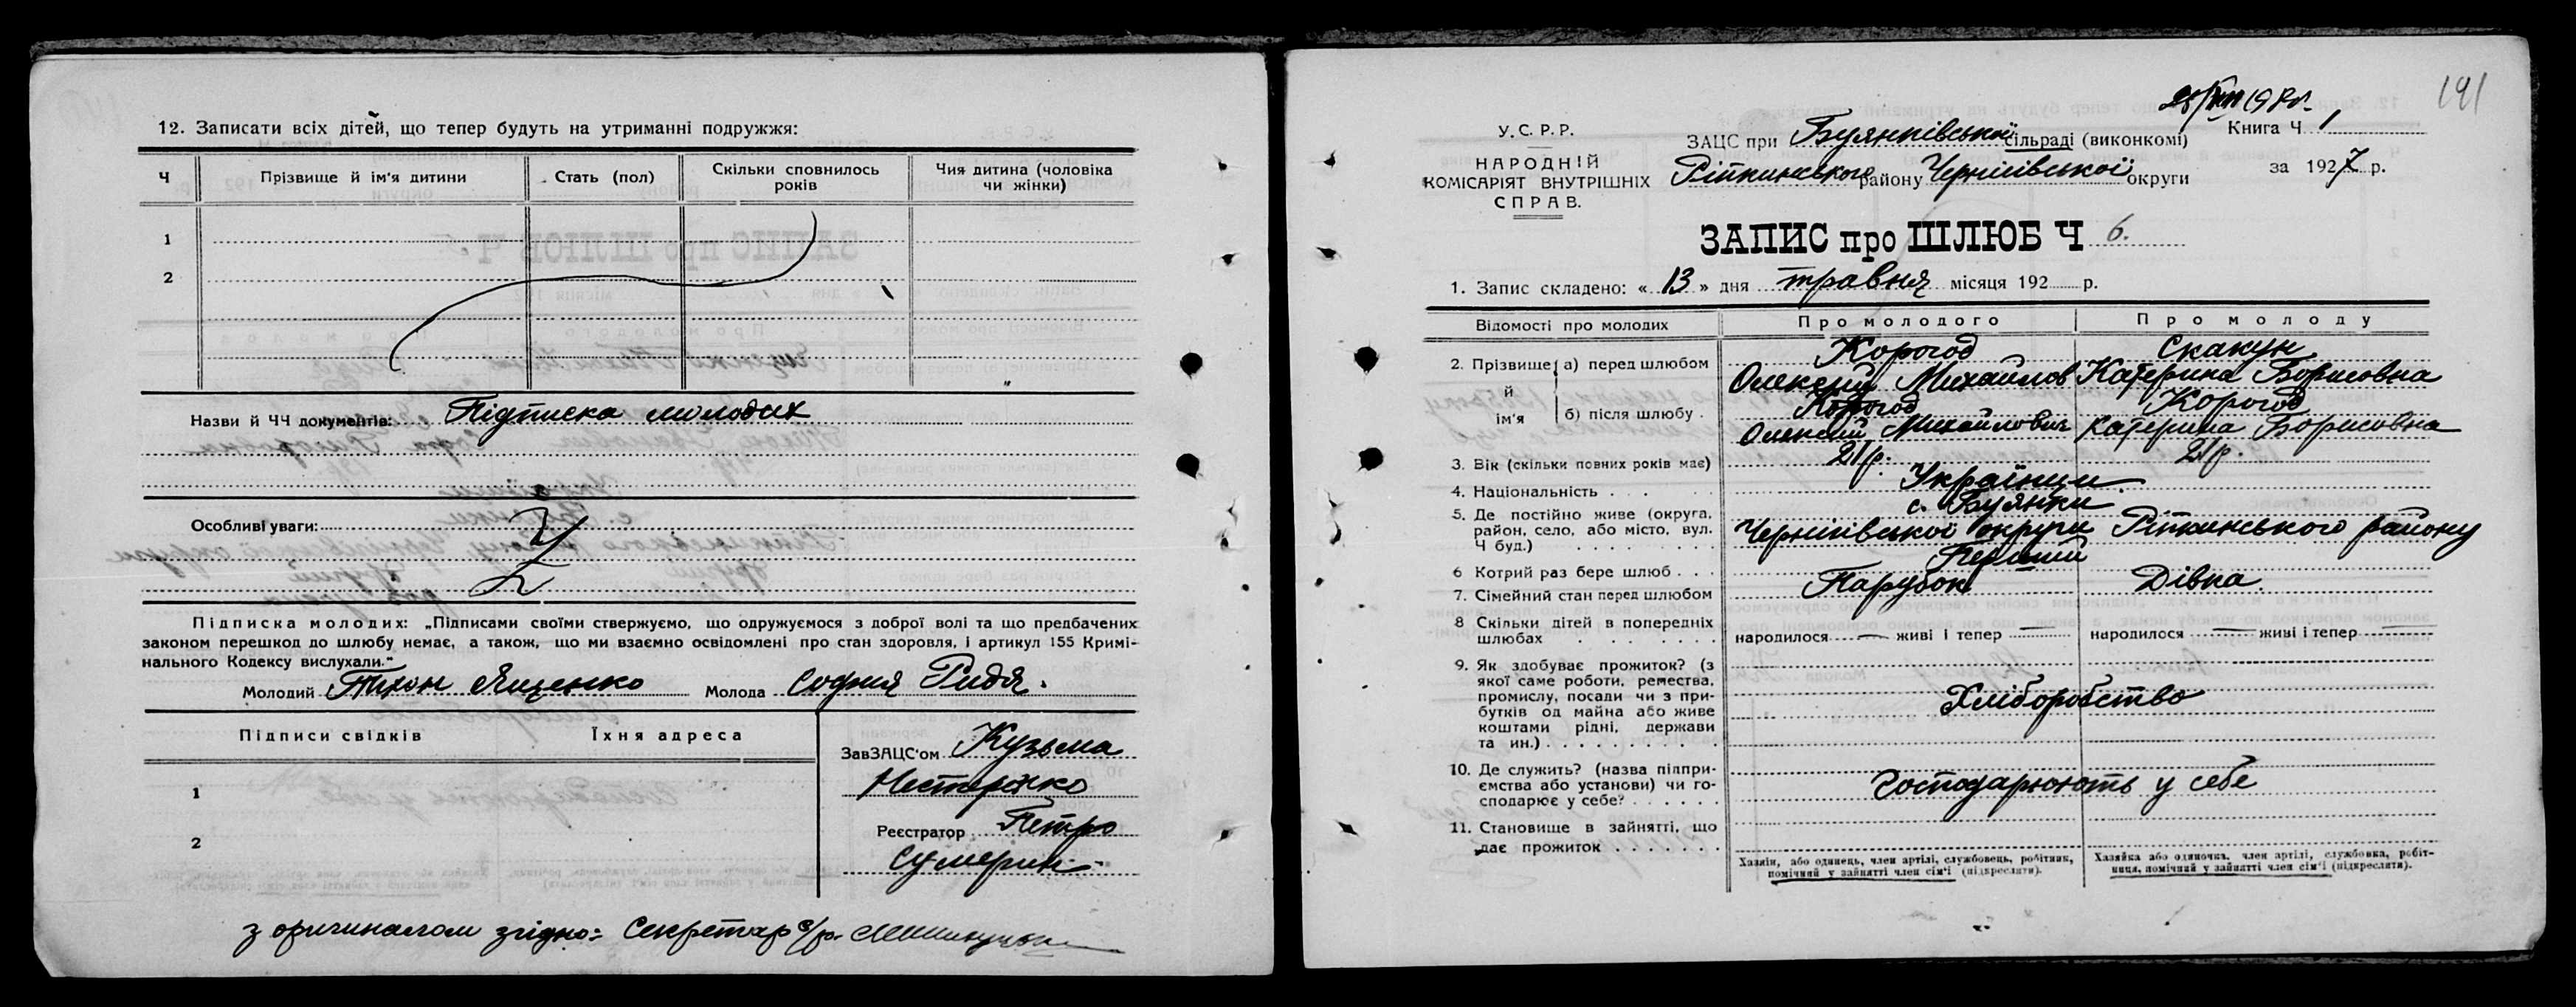 12. Записати всіх дітей, що тепер будуть на утриманні подружжя:
Ч
Прізвище й ім'я дитини
Стать (пол)
Скільки сповнилось років
Чия дитина (чоловіка чи жінки)
1
2
Назви й ЧЧ документів: Підписка молодих
Особливі уваги:
Підписка молодих: „Підписами своїми ствержуємо, що одружуємося з доброї волі та що предбачених
законом перешкод до шлюбу немає, а також, що ми взаємно освідомлені про стан здоровля, і артикул 155 Кримі-
нального Кодексу вислухали."
Молодий Тихон Яценко Молода София Гидя.
Підписи свідків
Їхня адреса
1
2
ЗавЗАЦС'ом Кузьма
Нестеренко
Реєстратор Петро
Сумерин
з оригиналом згідно: Секретар с/р.
191
У.С.Р.Р.
НАРОДНІЙ
КОМІСАРІЯТ ВНУТРІШНІХ
СПРАВ.
ЗАЦС при Буянківської сільраді (виконкомі)
Ріпкинського району Чернігівської округи
Книга Ч 1
за 1927 р.
ЗАПИС про ШЛЮБ Ч 6.
1. Запис складено: «13» дня травня місяця 192 р.
Відомості про молодих
Про молодого
Про молоду
2. Прізвище й ім'я
а) перед шлюбом
Корогод
Олексій Михайлов
Скакун
Катерина Борисовна
б) після шлюбу
Корогод
Олексій Михайлович
Корогод
Катерина Борисовна
3. Вік (скільки повних років має)
21р.
21р.
4. Національність
Українци
5. Де постійно живе (округа,
район, село, або місто, вул.
Ч буд.)
с. Буянки
Чернігівської округи Ріпкинського району
6 Котрий раз бере шлюб
Перший
7. Сімейний стан перед шлюбом
Парубок
Дівка
8 Скільки дітей в попередніх
шлюбах
народилося — живі і тепер —
народилося — живі і тепер —
9. Як здобуває прожиток? (з
якої саме роботи, ремества,
промислу, посади чи з при-
бутків од майна або живе
коштами рідні, держави
та ин.)
Хліборобство
10. Де служить? (назва підпри-
ємства або установи) чи го-
сподарює у себе?
Господарюють у себе
11. Становище в зайнятті, що
дає прожиток
Хазяїн, або одинець, член артілі, службовець, робітник,
помічний у зайнятті член сім'ї (підкреслити).
Хазяйка або одиночка, член артілі, службовка, робіт-
ниця, помічний у зайнятті член сім'ї (підкреслити).